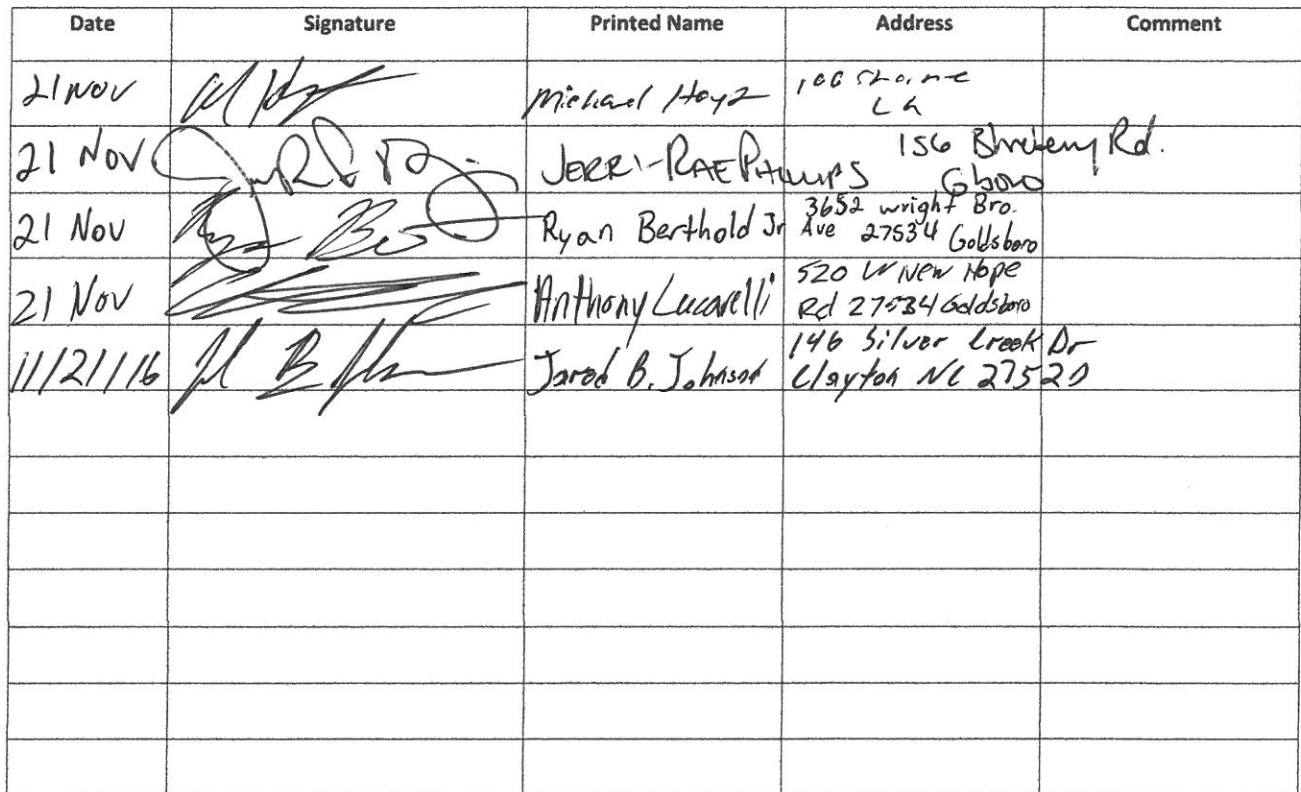 Date Signature Printed Name Address Comment
21 Nov Michael
21 Nov JERRI-RAE PHILLIPS 156 Rd.
Gboro
21 Nov Ryan Berthold Jr 3652 wright Bro.
Ave 27534 Goldsboro
21 Nov Anthony Lucarelli 520 W New Hope
Rd 27534 Goldsboro
11/21/16 Jarod B. Johnson 146 Silver Creek Dr
Clayton NC 27520